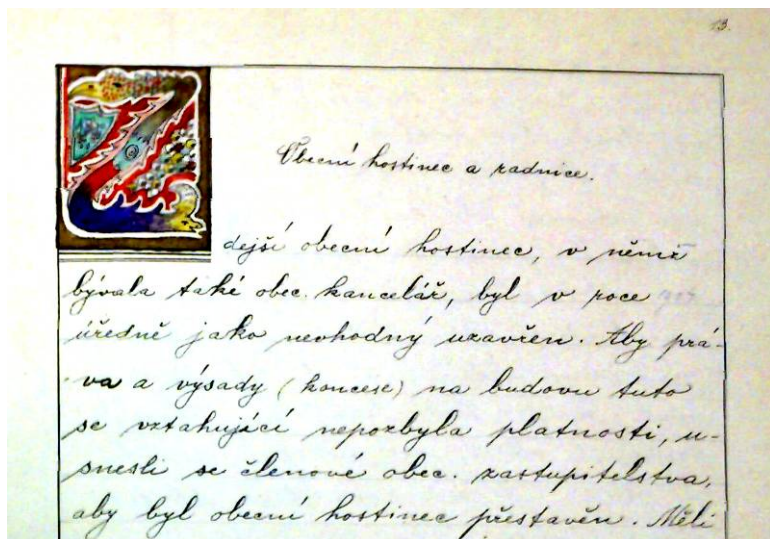 13.
Obecní hostinec a radnice.
Zdejší obecní hostinec, v němž
bývala také obec. kancelář, byl v roce
úředně jako nevhodný uzavřen. Aby prá-
va a výsady (koncese) na budovu tuto
se vztahující nepozbyla platnosti, u-
snesli se členové obec. zastupitelstva,
aby byl obecní hostinec přestavěn. Měli